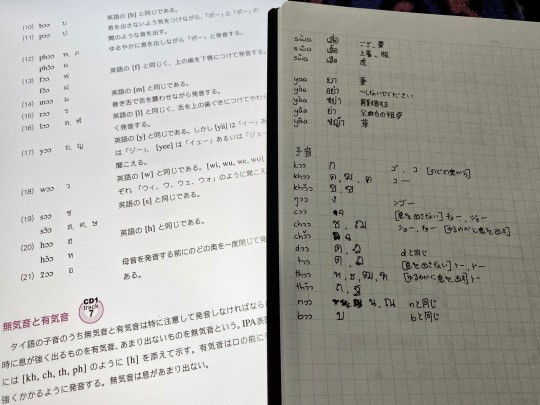 (10) bɔɔ บ
(11) pɔɔ ป
(12) phɔɔ พ, ภ
phɔ̌ɔ ผ
(13) fɔɔ ฟ
fɔ̌ɔ ฝ
(14) mɔɔ ม
(15) rɔɔ ร
(16) lɔɔ ล, ฬ
(17) yɔɔ ย, ญ
(18) wɔɔ ว
(19) sɔɔ ซ
sɔ̌ɔ ส, ศ, ษ
(20) hɔɔ ฮ
hɔ̌ɔ ห
(21) ʔɔɔ อ
英語の [b] と同じである。
息を出さないよう気をつけながら、「ボー」と「ポー」の
間のような音を出す。
ゆるやかに息を出しながら「ポー」と発音する。
英語の [f] と同じく、上の歯を下唇につけて発音
英語の [m] と同じである。
巻き舌で舌を震わせながら発音する。
英語の [l] と同じく、舌を上の歯ぐきにつけてやわら
く発音する。
英語の [y] と同じである。しかし [yii] は「イー」
は「ジー」、[yee] は「イェー」あるいは「ジェー
聞こえる。
英語の [w] と同じである。[wi, wu, we, wo]
ぞれ「ウィ、ウ、ウェ、ウォ」のように聞こえ
英語の [s] と同じである。
英語の [h] と同じである。
母音を発音する前にのどの奥を一度閉じて発
ある。
無気音と有気音 CD1 Track 7
タイ語の子音のうち無気音と有気音は特に注意して発音しなければなら
時に息が強く出るものを有気音、あまり出ないものを無気音という。IPA表
には [kh, ch, th, ph] のように [h] を添えて示す。有気音は口の前に手
強くかかるように発音する。無気音は息があまり出ない。
เสื่อ ござ、
เสื้อ 上着、服
เสือ 虎
yaa ยา 薬
yàa อย่า 〜しないでください
yàa หย่า
yâa ย่า 父方の祖母
yâa หญ้า 草
子音
kɔɔ ก ゴ、コ [のどの奥から]
khɔɔ ค, ฆ, ฅ コー
khɔ̌ɔ ข, ฃ
ŋɔɔ ง ンゴー
cɔɔ จ [息を出さない] チョー、ジョー
chɔɔ ช, ฌ ショー、チョー [ゆるやかに息を出す]
chɔ̌ɔ ฉ
dɔɔ ด, ฎ dと同じ
tɔɔ ต, ฏ [息を出さない] トー、ドー
thɔɔ ท, ธ, ฒ, ฑ [ゆるやかに息を出す] トー
thɔ̌ɔ ถ, ฐ
nɔɔ น, ณ nと同じ
bɔɔ บ bと同じ